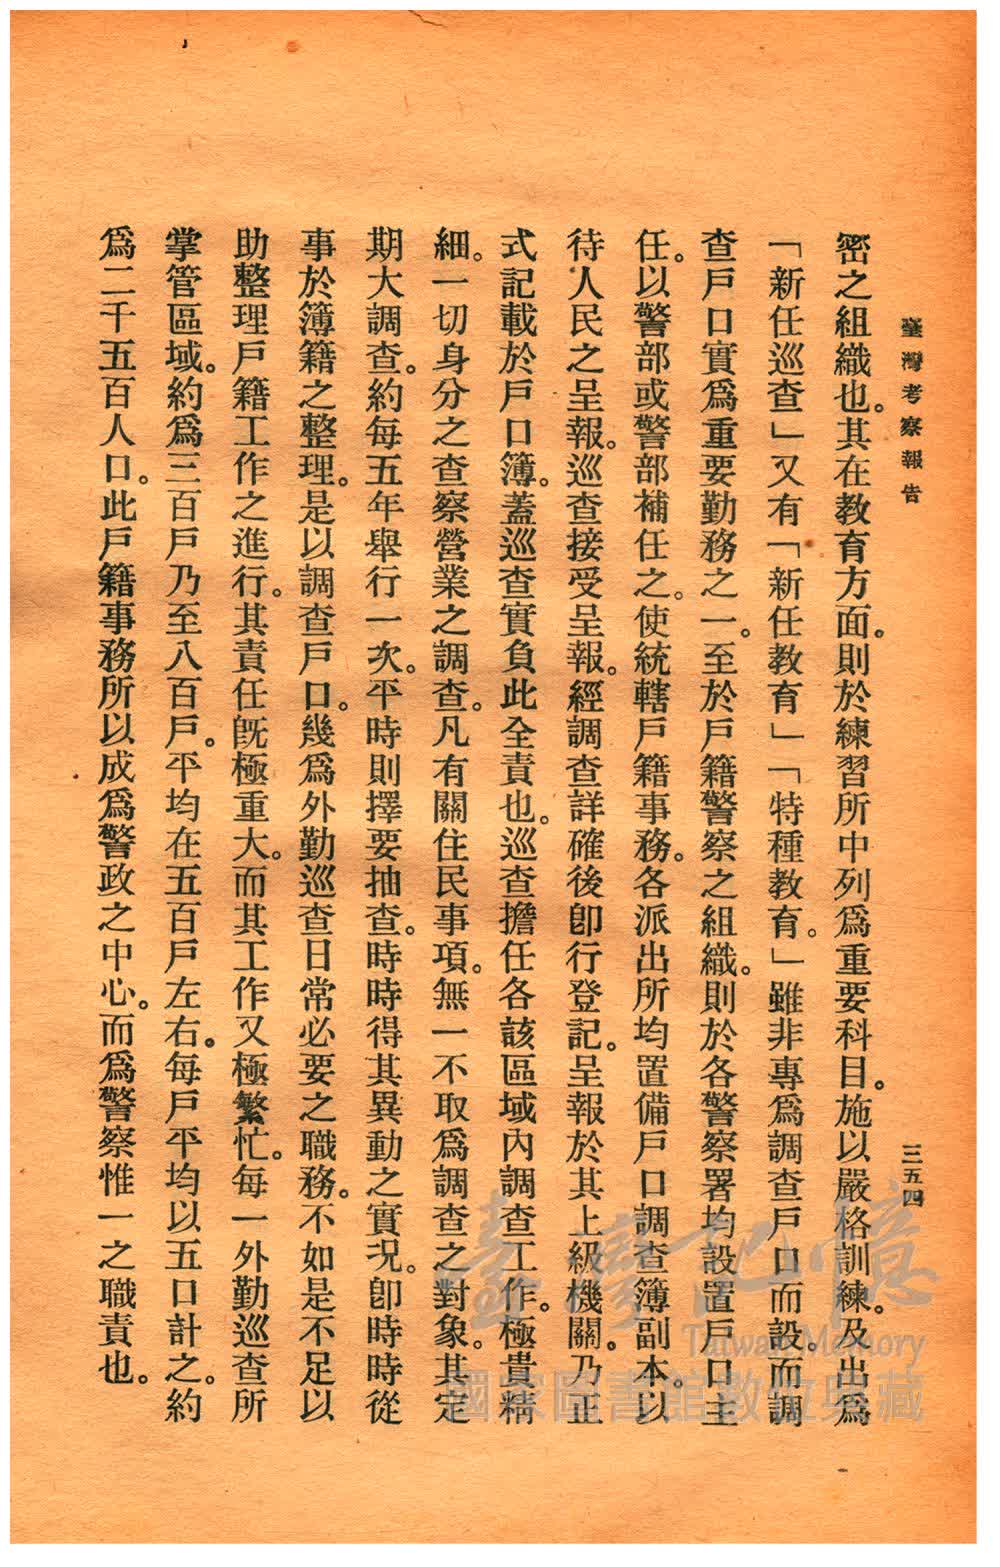 臺灣考察報告
三五四
密之組織也。其在教育方面。則於練習所中列爲重要科目。施以嚴格訓練。及出爲
「新任巡查」又有「新任教育」「特種教育。」雖非專爲調查戶口而設。而調
查戶口實爲重要勤務之一。至於戶籍警察之組織。則於各警察署均設置戶口主
任。以警部或警部補任之。使統轄戶籍事務。各派出所均置備戶口調查簿副本。以
待人民之呈報。巡查接受呈報。經調查詳確後卽行登記。呈報於其上級機關。乃正
式記載於戶口簿。蓋巡查實負此全責也。巡查擔任各該區域內調查工作。極貴精
細。一切身分之查察營業之調查。凡有關住民事項。無一不取爲調查之對象。其定
期大調查。約每五年舉行一次。平時則擇要抽查。時時得其異動之實况。卽時時從
事於簿籍之整理。是以調查戶口。幾爲外勤巡查日常必要之職務。不如是不足以
助整理戶籍工作之進行。其責任旣極重大。而其工作又極繁忙。每一外勤巡查所
掌管區域。約爲三百戶乃至八百戶。平均在五百戶左右。每戶平均以五口計之。約
爲二千五百人口。此戶籍事務所以成爲警政之中心。而爲警察惟一之職責也。
臺灣記憶
Taiwan Memory
國家圖書館數位典藏